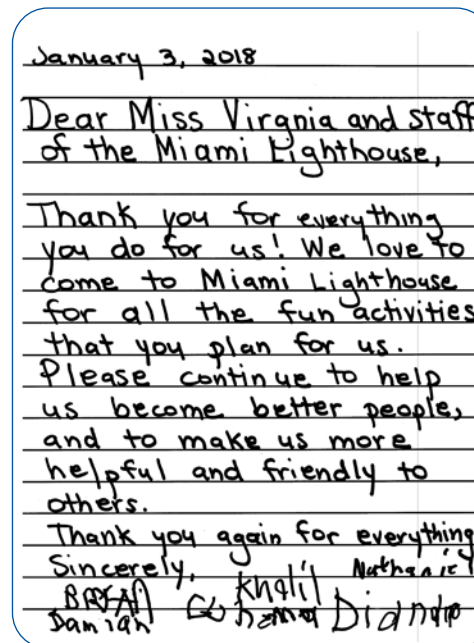 January 3, 2018
Dear Miss Virgnia and staff
of the Miami Lighthouse,
Thank you for everything
you do for us! We love to
come to Miami Lighthouse
for all the fun activities
that you plan for us.
Please continue to help
us become better people,
and to make us more
helpful and friendly to
others.
Thank you again for everything
Sincerely, Nathaniel
Khalil
Damian